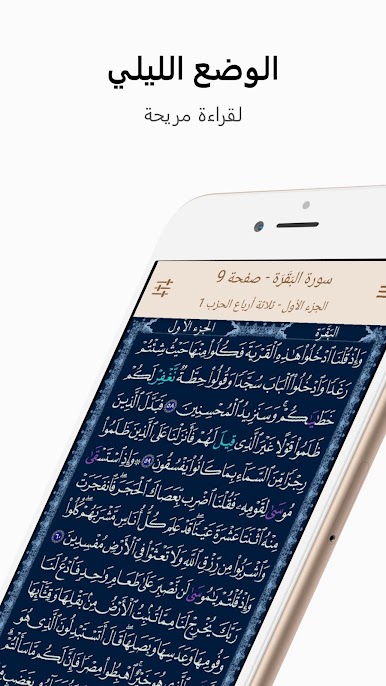 الوضع الليلي
لقراءة مريحة
سورة البَقَرَة - صفحة 9
الجزء الأول - ثلاثة أرباع الحزب 1
البَقَرَة
الجزء الأول
وَإِذْ قُلْنَا ٱدْخُلُوا۟ هَٰذِهِ ٱلْقَرْيَةَ فَكُلُوا۟ مِنْهَا حَيْثُ شِئْتُمْ
رَغَدًا وَٱدْخُلُوا۟ ٱلْبَابَ سُجَّدًا وَقُولُوا۟ حِطَّةٌ نَّغْفِرْ لَكُمْ
خَطَٰيَٰكُمْ وَسَنَزِيدُ ٱلْمُحْسِنِينَ ٥٨ فَبَدَّلَ ٱلَّذِينَ
ظَلَمُوا۟ قَوْلًا غَيْرَ ٱلَّذِى قِيلَ لَهُمْ فَأَنزَلْنَا عَلَى ٱلَّذِينَ ظَلَمُوا۟
رِجْزًا مِّنَ ٱلسَّمَآءِ بِمَا كَانُوا۟ يَفْسُقُونَ ٥٩ وَإِذِ ٱسْتَسْقَىٰ
مُوسَىٰ لِقَوْمِهِۦ فَقُلْنَا ٱضْرِب بِّعَصَاكَ ٱلْحَجَرَ فَٱنفَجَرَتْ
مِنْهُ ٱثْنَتَا عَشْرَةَ عَيْنًا قَدْ عَلِمَ كُلُّ أُنَاسٍ مَّشْرَبَهُمْ كُلُوا۟
وَٱشْرَبُوا۟ مِن رِّزْقِ ٱللَّهِ وَلَا تَعْثَوْا۟ فِى ٱلْأَرْضِ مُفْسِدِينَ ٦٠
وَإِذْ قُلْتُمْ يَٰمُوسَىٰ لَن نَّصْبِرَ عَلَىٰ طَعَامٍ وَٰحِدٍ فَٱدْعُ لَنَا
رَبَّكَ يُخْرِجْ لَنَا مِمَّا تُنۢبِتُ ٱلْأَرْضُ مِنۢ بَقْلِهَا وَقِثَّآئِهَا
وَفُومِهَا وَعَدَسِهَا وَبَصَلِهَا قَالَ أَتَسْتَبْدِلُونَ ٱلَّذِى هُوَ
هُوَ خَيْرٌ ٱهْبِطُوا۟ مِصْرًا فَإِنَّ لَكُم مَّا سَأَلْتُمْ